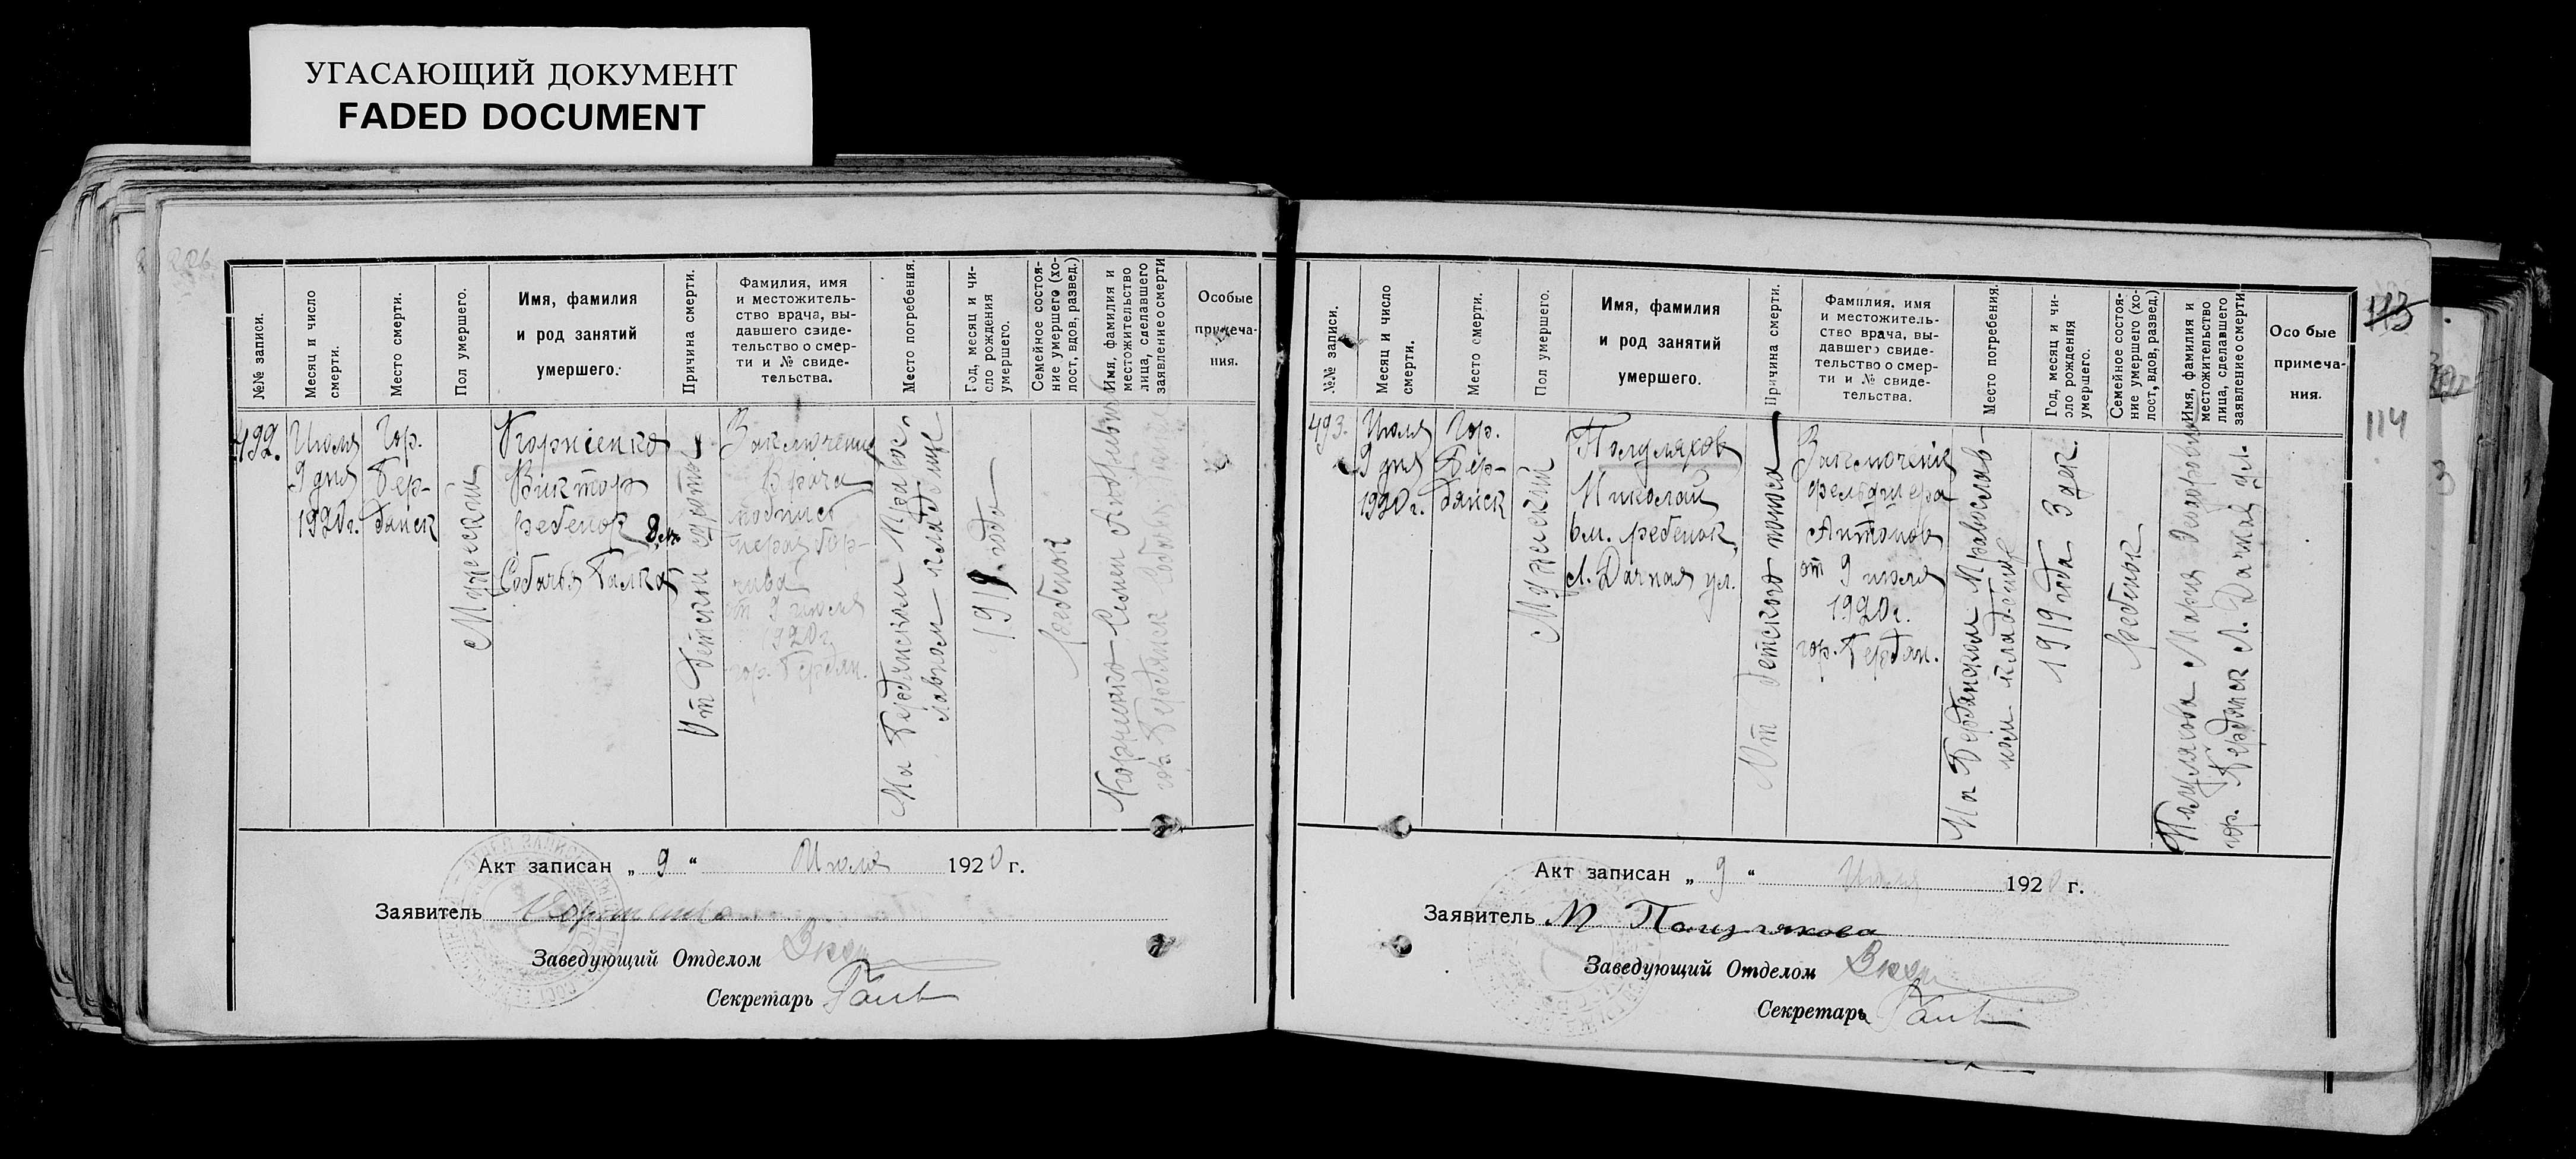 УГАСАЮЩИЙ ДОКУМЕНТ
FADED DOCUMENT
№№ записи.
Месяц и число
смерти.
Место смерти.
Пол умершего.
Имя, фамилия
и род занятий
умершего.
Причина смерти.
Фамилия, имя
и местожитель-
ство врача, вы-
давшего свиде-
тельство о смер-
ти и № свиде-
тельства.
Место погребения.
Год, месяц и чи-
сло рождения
умершего.
Семейное состоя-
ние умершего (хо-
лост, вдов, развед.)
Имя, фамилия и
местожительство
лица, сделавшего
заявление о смерти
Особые
примеча-
ния.
492.
Июля
9 дня
1920 г.
Гор.
Бер-
дянск
Мужской
Корніенко
Виктор
ребенок
Собачья Балка
От детской
Заключение
Врача
подпись
от 9 июля
1920 г.
гор. Бердян.
На Бердянском Правос-
лавном кладбище
1919 года
Ребенок
Корниенко Семен Андреевич
гор. Бердянск Собачья балка
Акт записан „ 9 “ Июля 1920 г.
Заявитель Корниенко
Заведующий Отделом
Секретарь
№№ записи.
Месяц и число
смерти.
Место смерти.
Пол умершего.
Имя, фамилия
и род занятий
умершего.
Причина смерти.
Фамилия, имя
и местожитель-
ство врача, вы-
давшего свиде-
тельство о смер-
ти и № свиде-
тельства.
Место погребения.
Год, месяц и чи-
сло рождения
умершего.
Семейное состоя-
ние умершего (хо-
лост, вдов, развед.)
Имя, фамилия и
местожительство
лица, сделавшего
заявление о смерти
Осо бые
примеча-
ния.
113
114
493.
Июля
9 дня
1920 г.
Гор.
Бер-
дянск
Мужской
Полуляхов
Николай
ребенок
Л. Дачная ул.
От детского поноса
Заключение
фельдшера
Антонов
от 9 июля
1920 г.
гор. Бердян.
На Бердянском Православ-
ном кладбище
1919 года 3 дек.
Ребенок
Полулякова Мария Федоровна
гор. Бердянск Л. Дачная ул.
Акт записан „ 9 “ Июля 1920 г.
Заявитель М Полулякова
Заведующий Отделом
Секретарь